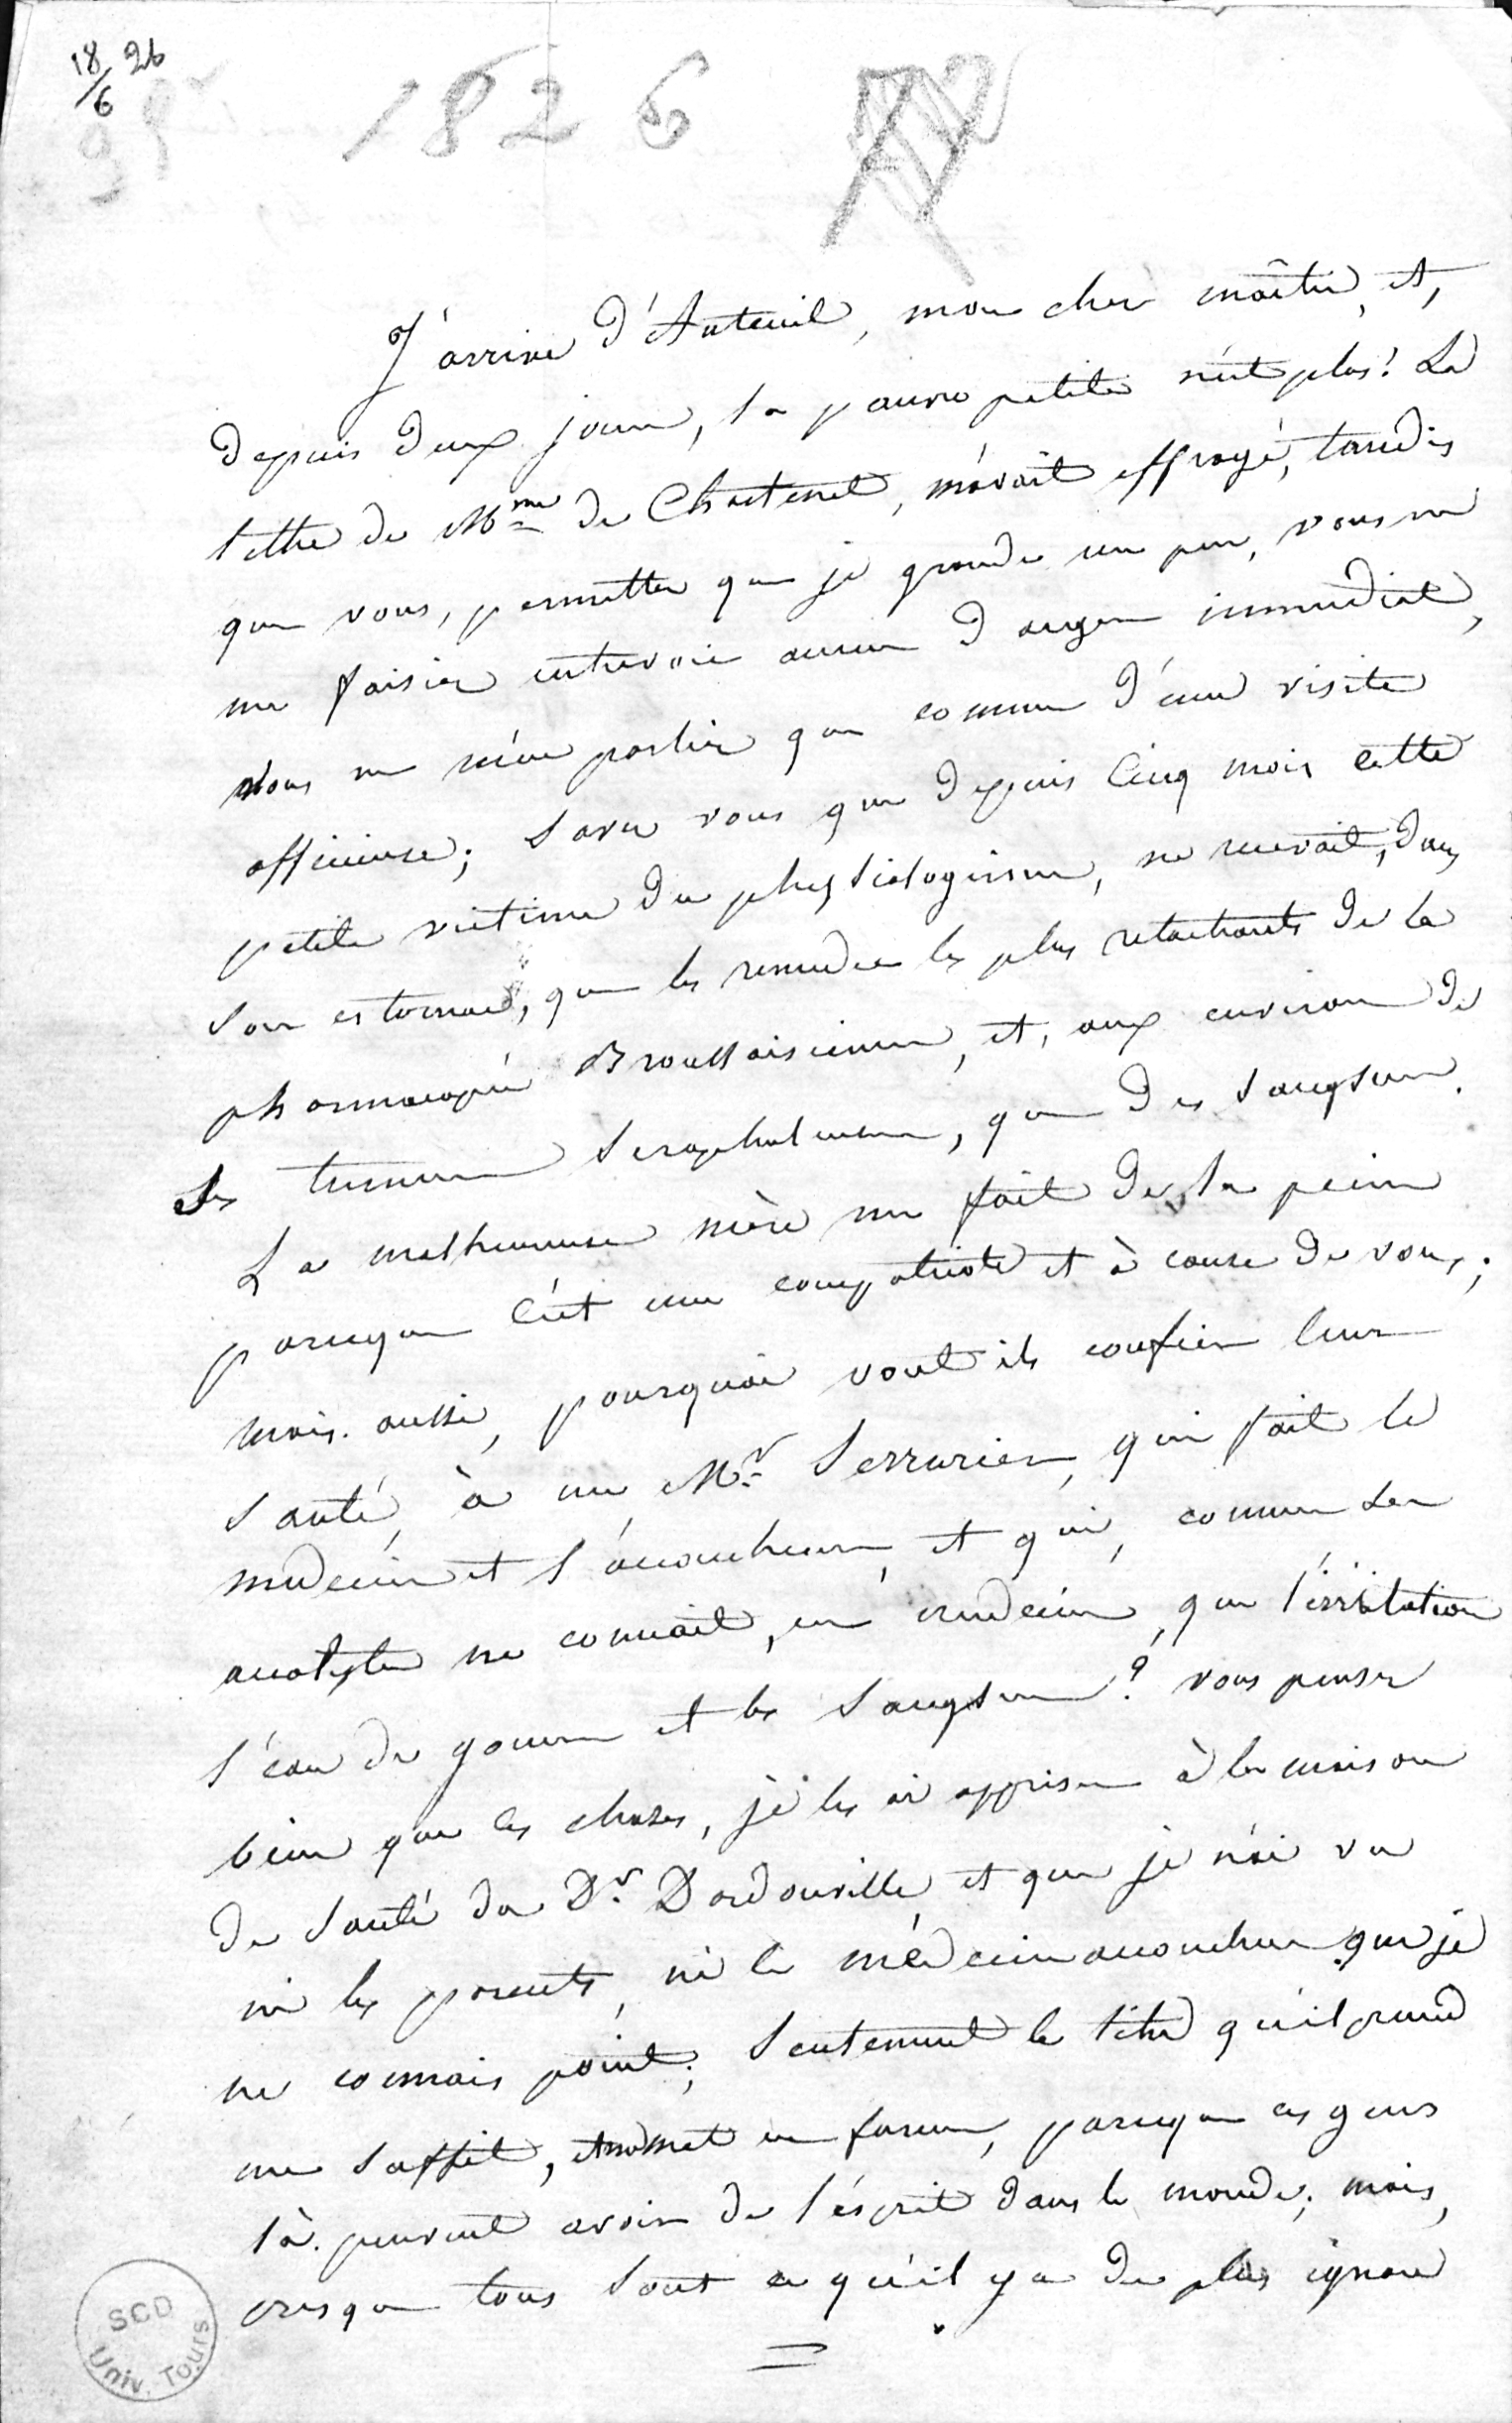 18/6 26
1826
J'arrive d'Auteuil, mon cher maître, et,
depuis deux jours, la pauvre petite n'est plus! La
lettre de Mme de Chastenet, m'avait effrayé, tandis
que vous, permettez que je gronde un peu, vous ne
me faisiez entrevoir aucun danger immédiat,
vous ne m'en parliez que comme d'une visite
officieuse; savez vous que depuis cinq mois cette
petite victime du physiologisme, ne recevait, dans
son estomac, que les remèdes les plus relachants de la
pharmacopée Broussaisienne, et, aux environs de
ses tumeurs scrophuleuses, que des sangsues.
La malheureuse mère me fait de la peine
parceque c'est une compatriote et à cause de vous;
mais aussi, pourquoi vont ils confier leur
santé, à un Mr Serrurier, qui fait le
medecin et l'accoucheur, et qui, comme un
acolyte ne connait, en médecine, que l'irritation
l'eau de gomme et les sangsues? vous pensez
bien que ces choses, je les ai apprises à la maison
de santé du Dr Dardonville, et que je n'ai vu
ni les parents, ni le médecin accoucheur que je
ne connais point; seulement le titre qu'il prend
me suffit, et me met en fureur, parceque ces gens
là peuvent avoir de l'esprit dans le monde; mais,
presque tous sont ce qu'il y a de plus ignare
SCD
Univ. Tours